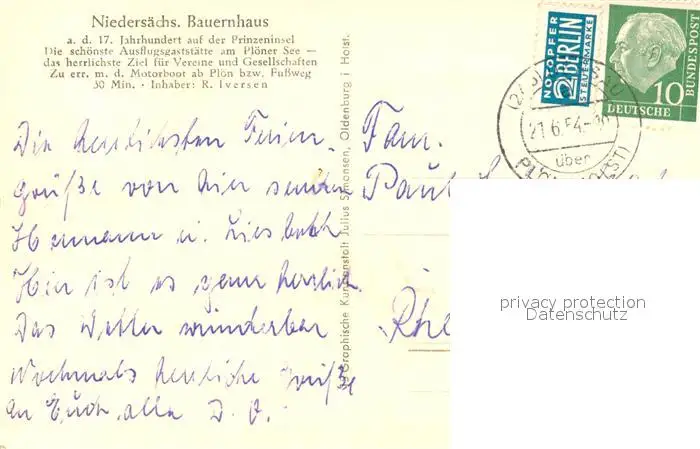 Niedersächs. Bauernhaus
a. d. 17. Jahrhundert auf der Prinzeninsel
Die schönste Ausflugsgaststätte am Plöner See —
das herrlichste Ziel für Vereine und Gesellschaften
Zu err. m. d. Motorboot ab Plön bzw. Fußweg
30 Min. · Inhaber: R. Iversen
NOTOPFER
2 BERLIN
STEUERMARKE
DEUTSCHE
BUNDESPOST
10
21.6.54
über
Die herzlichsten Ferien-
grüße von hier senden
Hermann u.
Hier ist es ganz herrlich.
Das Wetter wunderbar
Nochmals herzliche Grüße
an Euch alle D. O.
Graphische Kunstanstalt Julius Simonsen, Oldenburg i. Holst.
Fam.
Paul
Rhe
privacy protection
Datenschutz